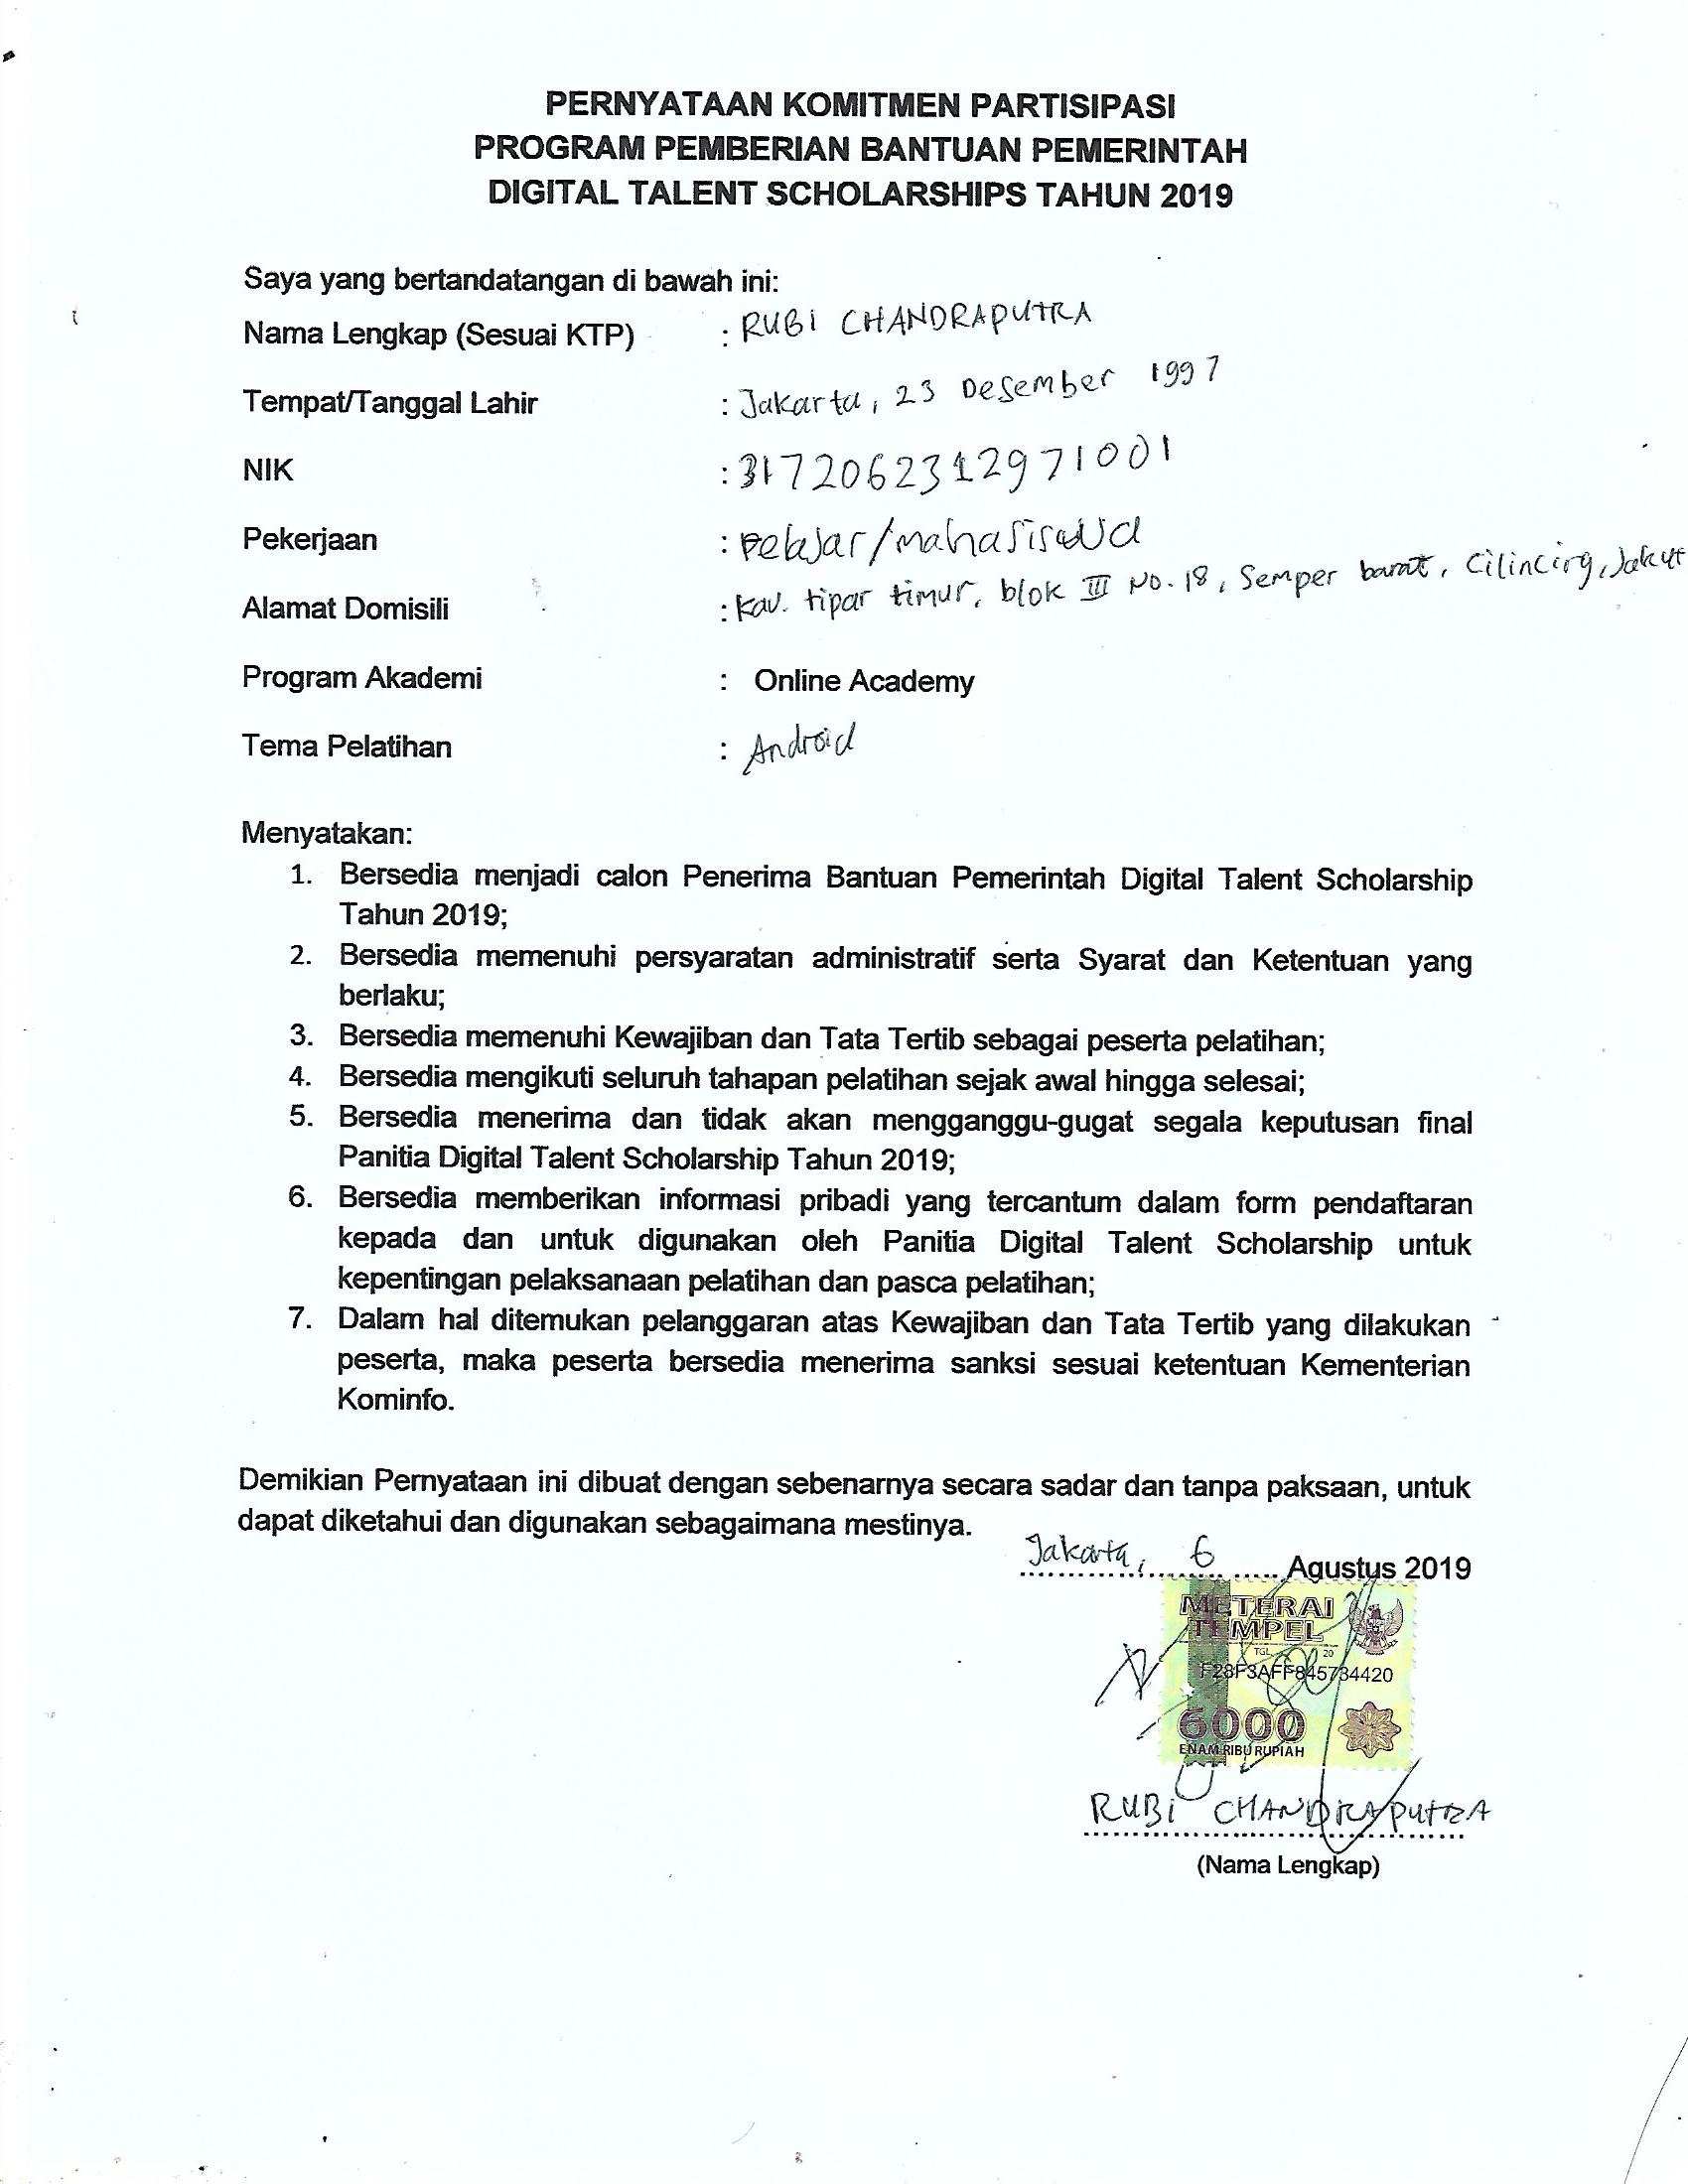 PERNYATAAN KOMITMEN PARTISIPASI
PROGRAM PEMBERIAN BANTUAN PEMERINTAH
DIGITAL TALENT SCHOLARSHIPS TAHUN 2019
Saya yang bertandatangan di bawah ini:
Nama Lengkap (Sesuai KTP) : RUBI CHANDRAPUTRA
Tempat/Tanggal Lahir : Jakarta, 23 Desember 1997
NIK : 3172062312971001
Pekerjaan : Pelajar/mahasiswa
Alamat Domisili : kav. tipar timur, blok III No. 18, Semper barat, Cilincing, Jakut
Program Akademi : Online Academy
Tema Pelatihan : Android
Menyatakan:
1. Bersedia menjadi calon Penerima Bantuan Pemerintah Digital Talent Scholarship
Tahun 2019;
2. Bersedia memenuhi persyaratan administratif serta Syarat dan Ketentuan yang
berlaku;
3. Bersedia memenuhi Kewajiban dan Tata Tertib sebagai peserta pelatihan;
4. Bersedia mengikuti seluruh tahapan pelatihan sejak awal hingga selesai;
5. Bersedia menerima dan tidak akan mengganggu-gugat segala keputusan final
Panitia Digital Talent Scholarship Tahun 2019;
6. Bersedia memberikan informasi pribadi yang tercantum dalam form pendaftaran
kepada dan untuk digunakan oleh Panitia Digital Talent Scholarship untuk
kepentingan pelaksanaan pelatihan dan pasca pelatihan;
7. Dalam hal ditemukan pelanggaran atas Kewajiban dan Tata Tertib yang dilakukan
peserta, maka peserta bersedia menerima sanksi sesuai ketentuan Kementerian
Kominfo.
Demikian Pernyataan ini dibuat dengan sebenarnya secara sadar dan tanpa paksaan, untuk
dapat diketahui dan digunakan sebagaimana mestinya.
Jakarta, 6 Agustus 2019
METERAI
TEMPEL
TGL. 20
F28F3AFF845734420
6000
ENAM RIBU RUPIAH
RUBI CHANDRAPUTRA
(Nama Lengkap)